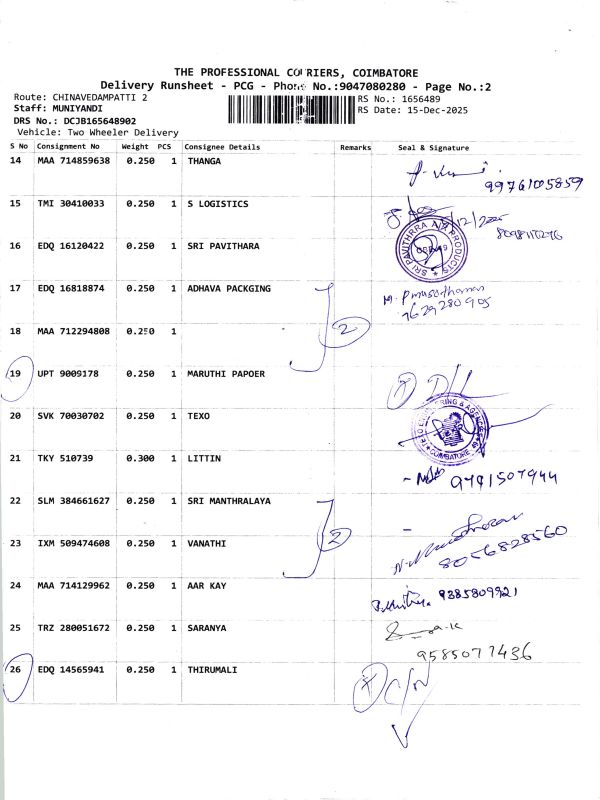 THE PROFESSIONAL COURIERS, COIMBATORE
Delivery Runsheet - PCG - Phone No.:9047080280 - Page No.:2
Route: CHINAVEDAMPATTI 2
Staff: MUNIYANDI
DRS No.: DCJB165648902
Vehicle: Two Wheeler Delivery
RS No.: 1656489
RS Date: 15-Dec-2025
S No Consignment No Weight PCS Consignee Details Remarks Seal & Signature
14 MAA 714859638 0.250 1 THANGA
9976105859
15 TMI 30410033 0.250 1 S LOGISTICS
16 EDQ 16120422 0.250 1 SRI PAVITHARA
SRI PAVITHRRA PRODUCTS
17 EDQ 16818874 0.250 1 ADHAVA PACKGING
7629280905
18 MAA 712294808 0.250 1
2
19 UPT 9009178 0.250 1 MARUTHI PAPOER
D/L
20 SVK 70030702 0.250 1 TEXO
COIMBATORE
21 TKY 510739 0.300 1 LITTIN
9791507944
22 SLM 384661627 0.250 1 SRI MANTHRALAYA
2
23 IXM 509474608 0.250 1 VANATHI
8056828560
24 MAA 714129962 0.250 1 AAR KAY
9385809921
25 TRZ 280051672 0.250 1 SARANYA
9585077436
26 EDQ 14565941 0.250 1 THIRUMALI
C/N